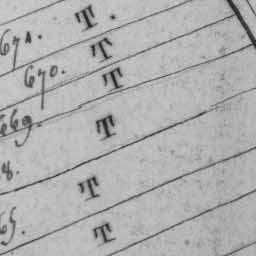 671. T.
670. T
669. T
8. T
T
65. T